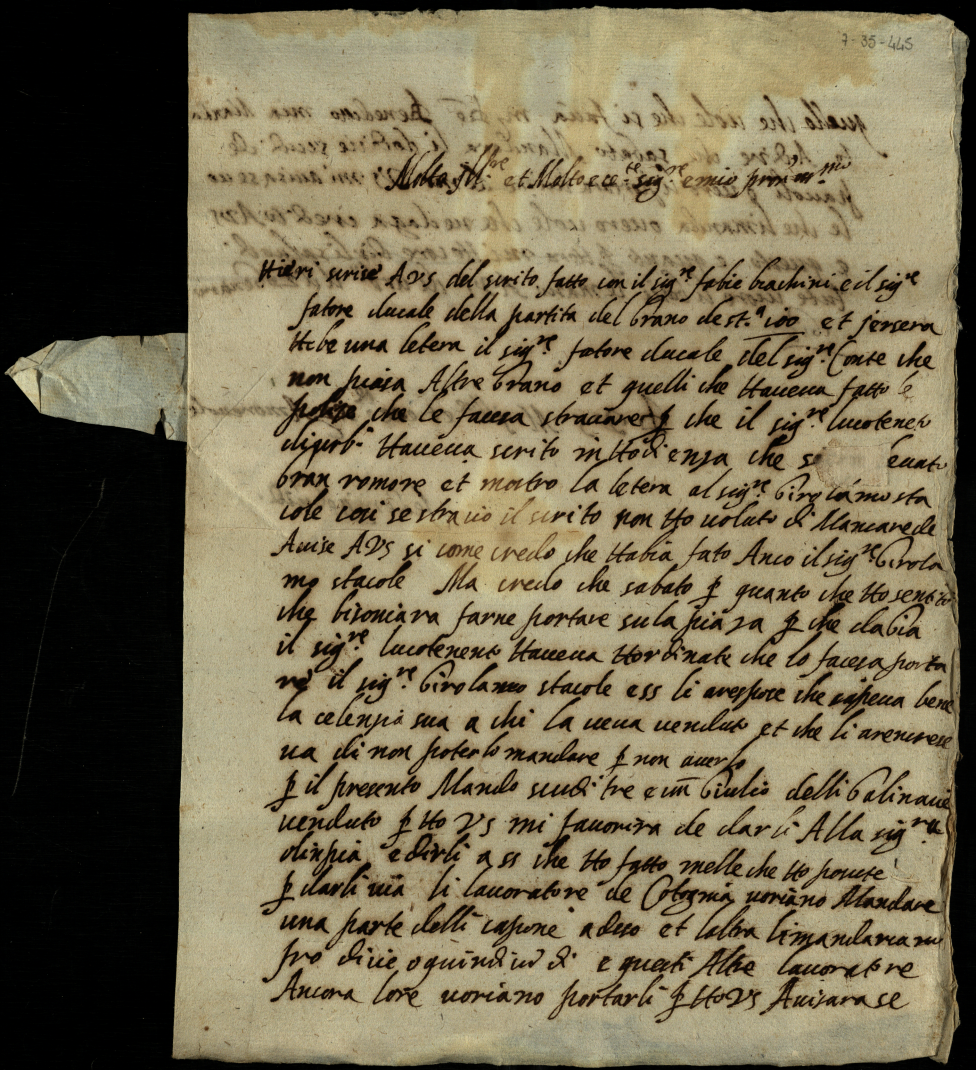 7-35-445
Molto Ill.re et Molto ecc.te sig.re e mio
Hieri scrise A VS del scrito fatto con il sig.re fabie brachini e il sig.re
fatore ducale della partita del Grano de st.a 100 et jersera
Hebe una letera il sig.re fatore ducale del sig.re Conte che
non piasa Altre Grano et quelli che Haveva fatto le
polize che le facesa straciare p che il sig.re lucotenen
Haveva scrito in che s evato
Gran romore et mostro la letera al sig.re Girolamo sta
cole cosi se stracio il scrito non Ho voluto di Mancare de
Avise A VS si come credo che Habia fato Anco il sig.re Girola
mo stacole Ma credo che sabato p quanto che Ho sentito
che bisoniara farne portare su la piaza p che
il sig.re lucotenent Haveva Hordinate che lo facesa porta
re il sig.re Girolamo stacole ess li arespose che sapeva bene
la celenzia sua a chi la veva venduto et che li arencrese
va di non poterlo mandare p non averlo
p il presento Mando scudi tre e un Giulio delli Galinacie
venduto p Ho VS mi favorira de darli Alla sig.ra
olinpia e dirli a ss che Ho fatto melle che Ho posute
p darli via li lavoratore de Cotognia voriano Mandare
una parte delli caponi adeso et l altra li mandariano
fra dicie o quindici di e questi Altre lavoratore
Ancora lore voriano portarli p Ho VS Avisara se